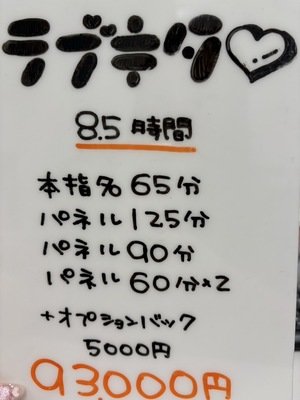 ラブキタ♡
8.5時間
本指名 65分
パネル 125分
パネル 90分
パネル 60分×2
+オプションバック
5000円
93,000円